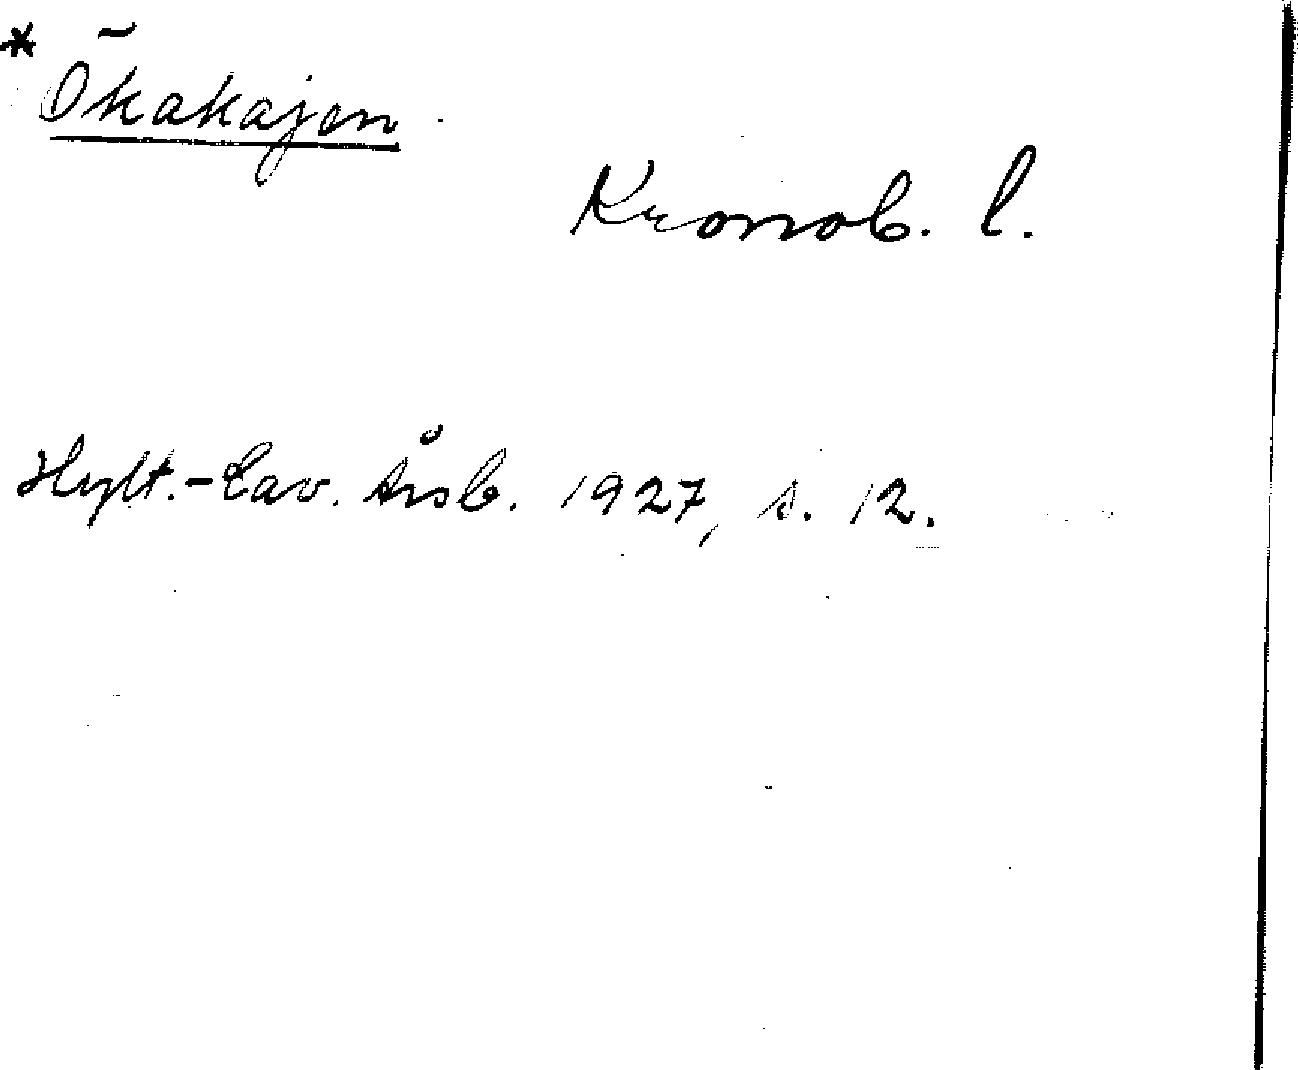 * Ökakajen
Kronob. l.
Hylt.-Cav. Årsb. 1927, s. 12.